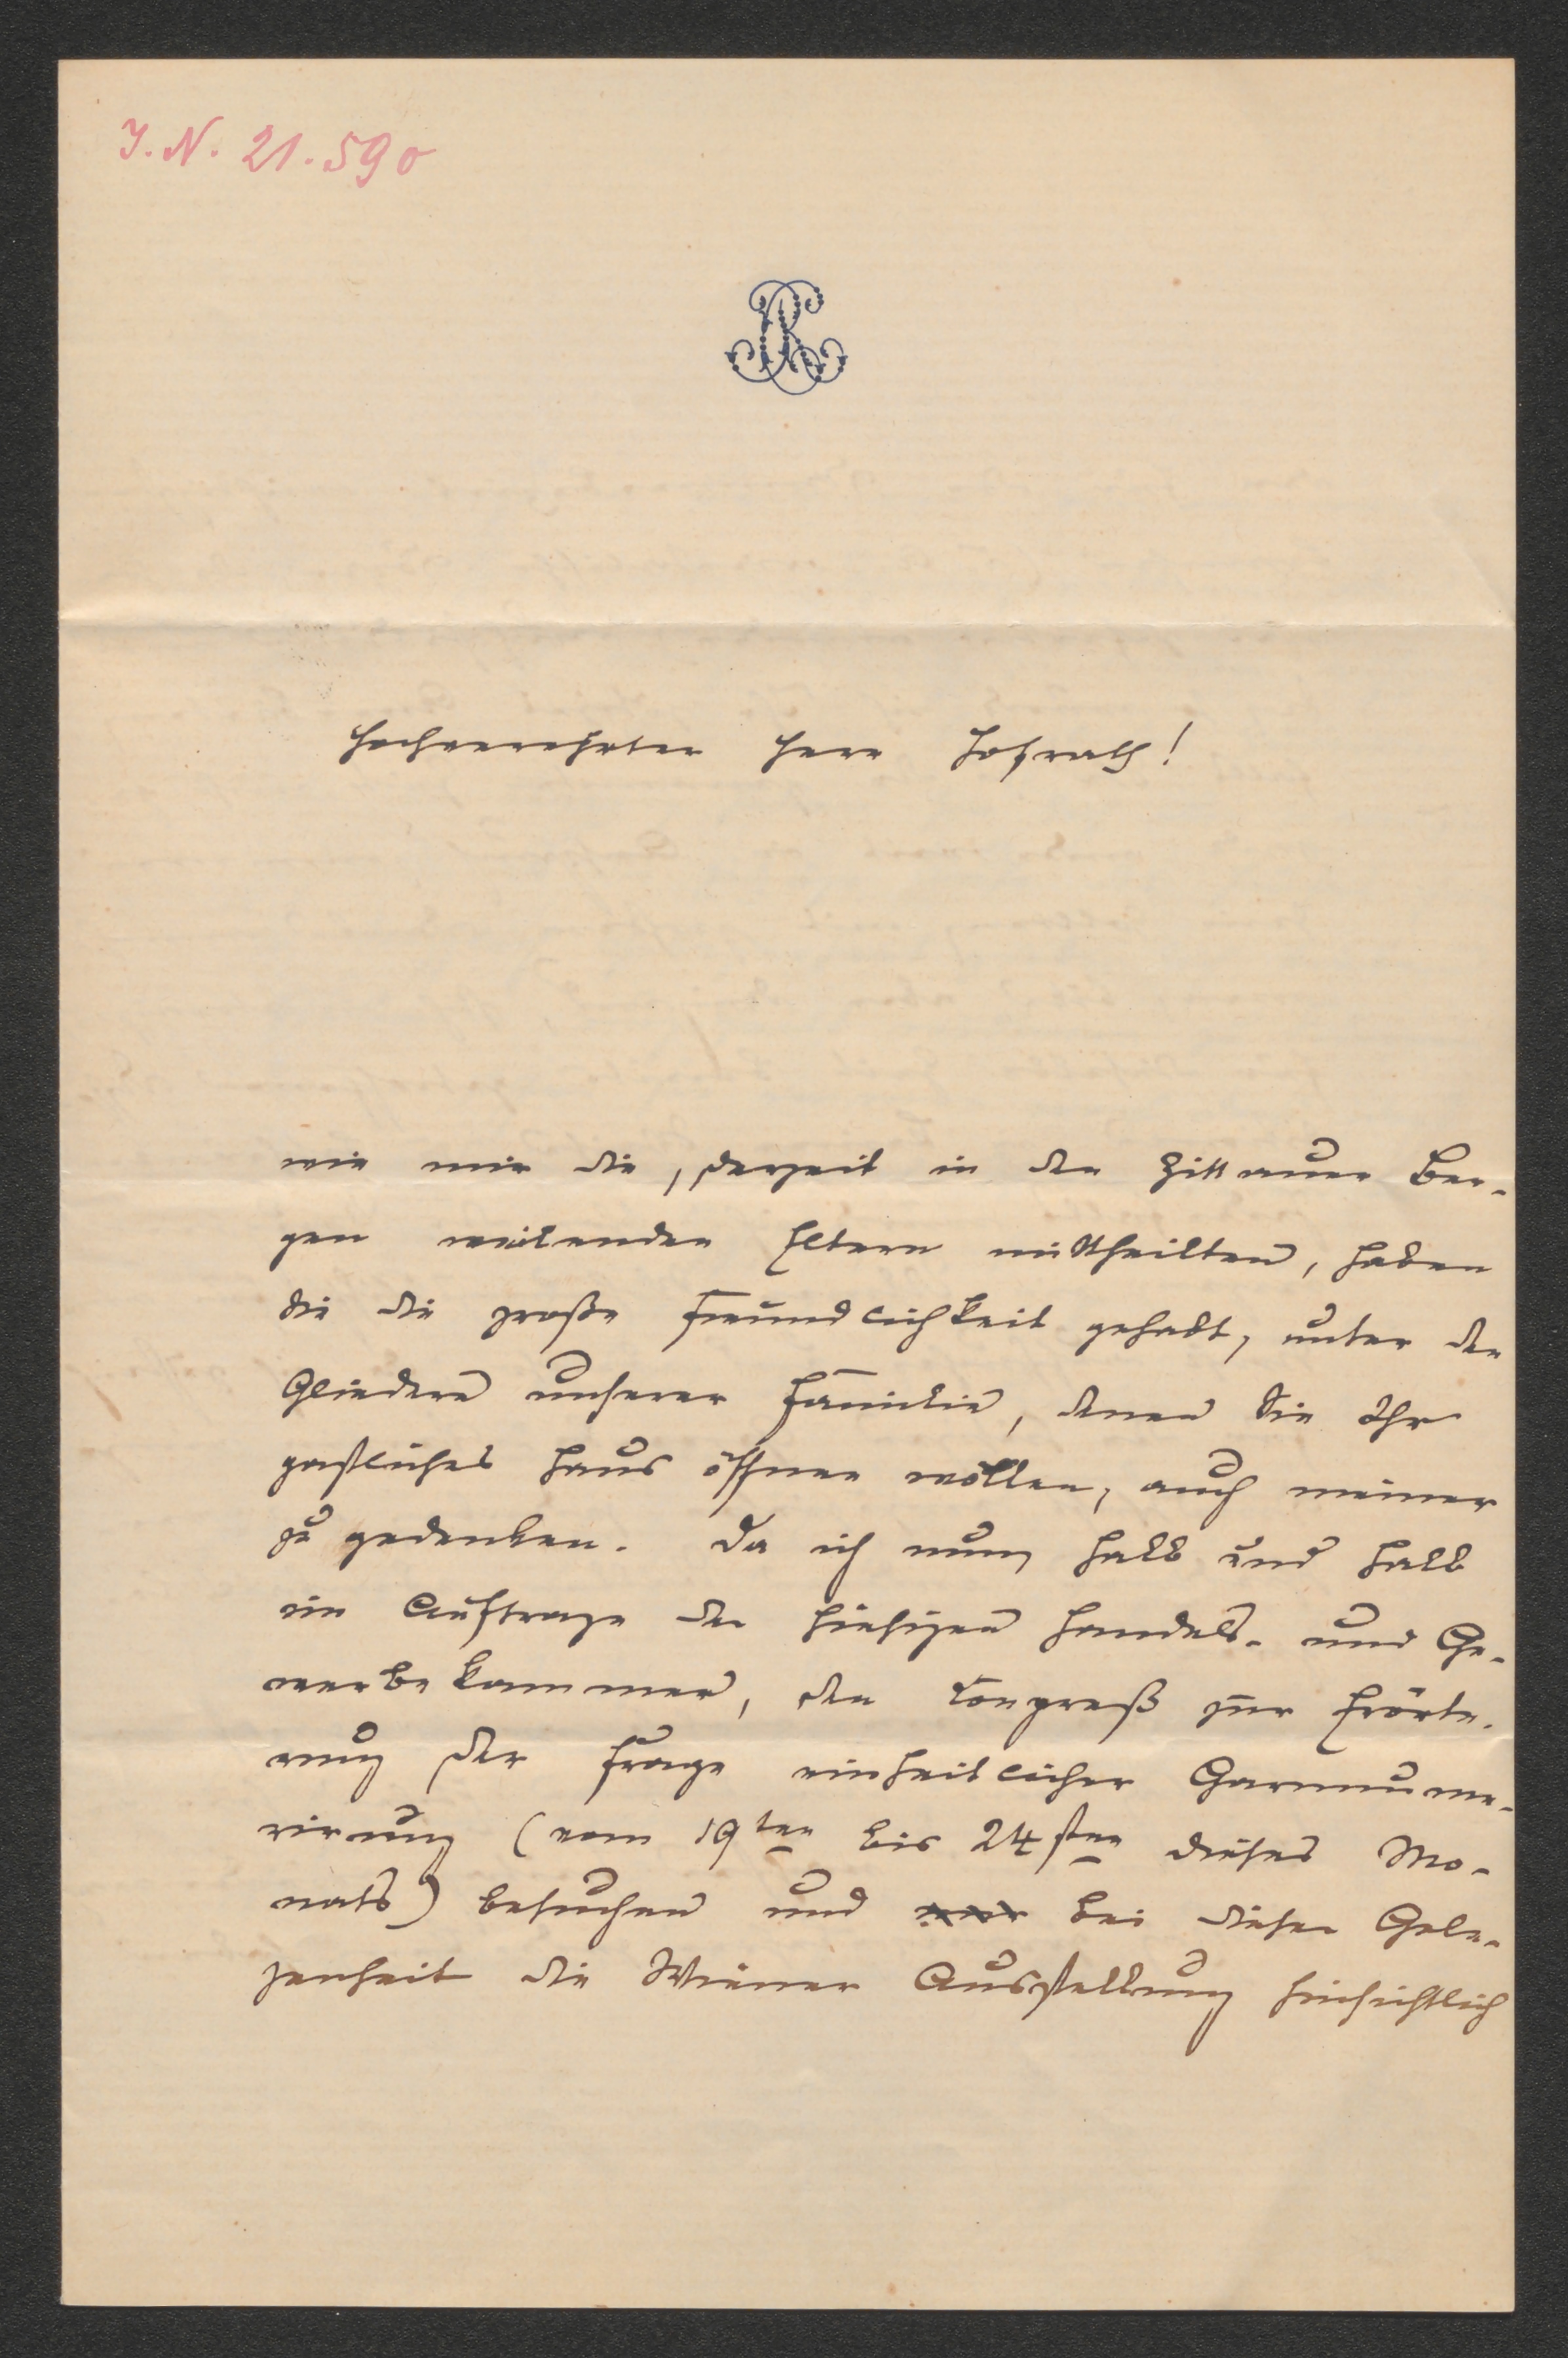 J. N. 21.590
Hochverehrter Herr Hofrath!
wie mir die, derzeit in den Zittauer Ber-
gen weilenden Eltern mittheilten, haben
Sie die große Freundlichkeit gehabt, unter den
Gliedern unserer Familie, denen Sie Ihr
gastliches Haus öffnen wollen, auch meiner
zu gedenken. Da ich nun, halb und halb
im Auftrage der hiesigen Handels- und Ge-
werbekammer, den Congreß zur Erörte-
rung der Frage einheitlicher Garnnume-
rirung (vom 19ten bis 24sten dieses Mo-
nats) besuchen und bei dieser Gele-
genheit die Wiener Ausstellung hinsichtlich